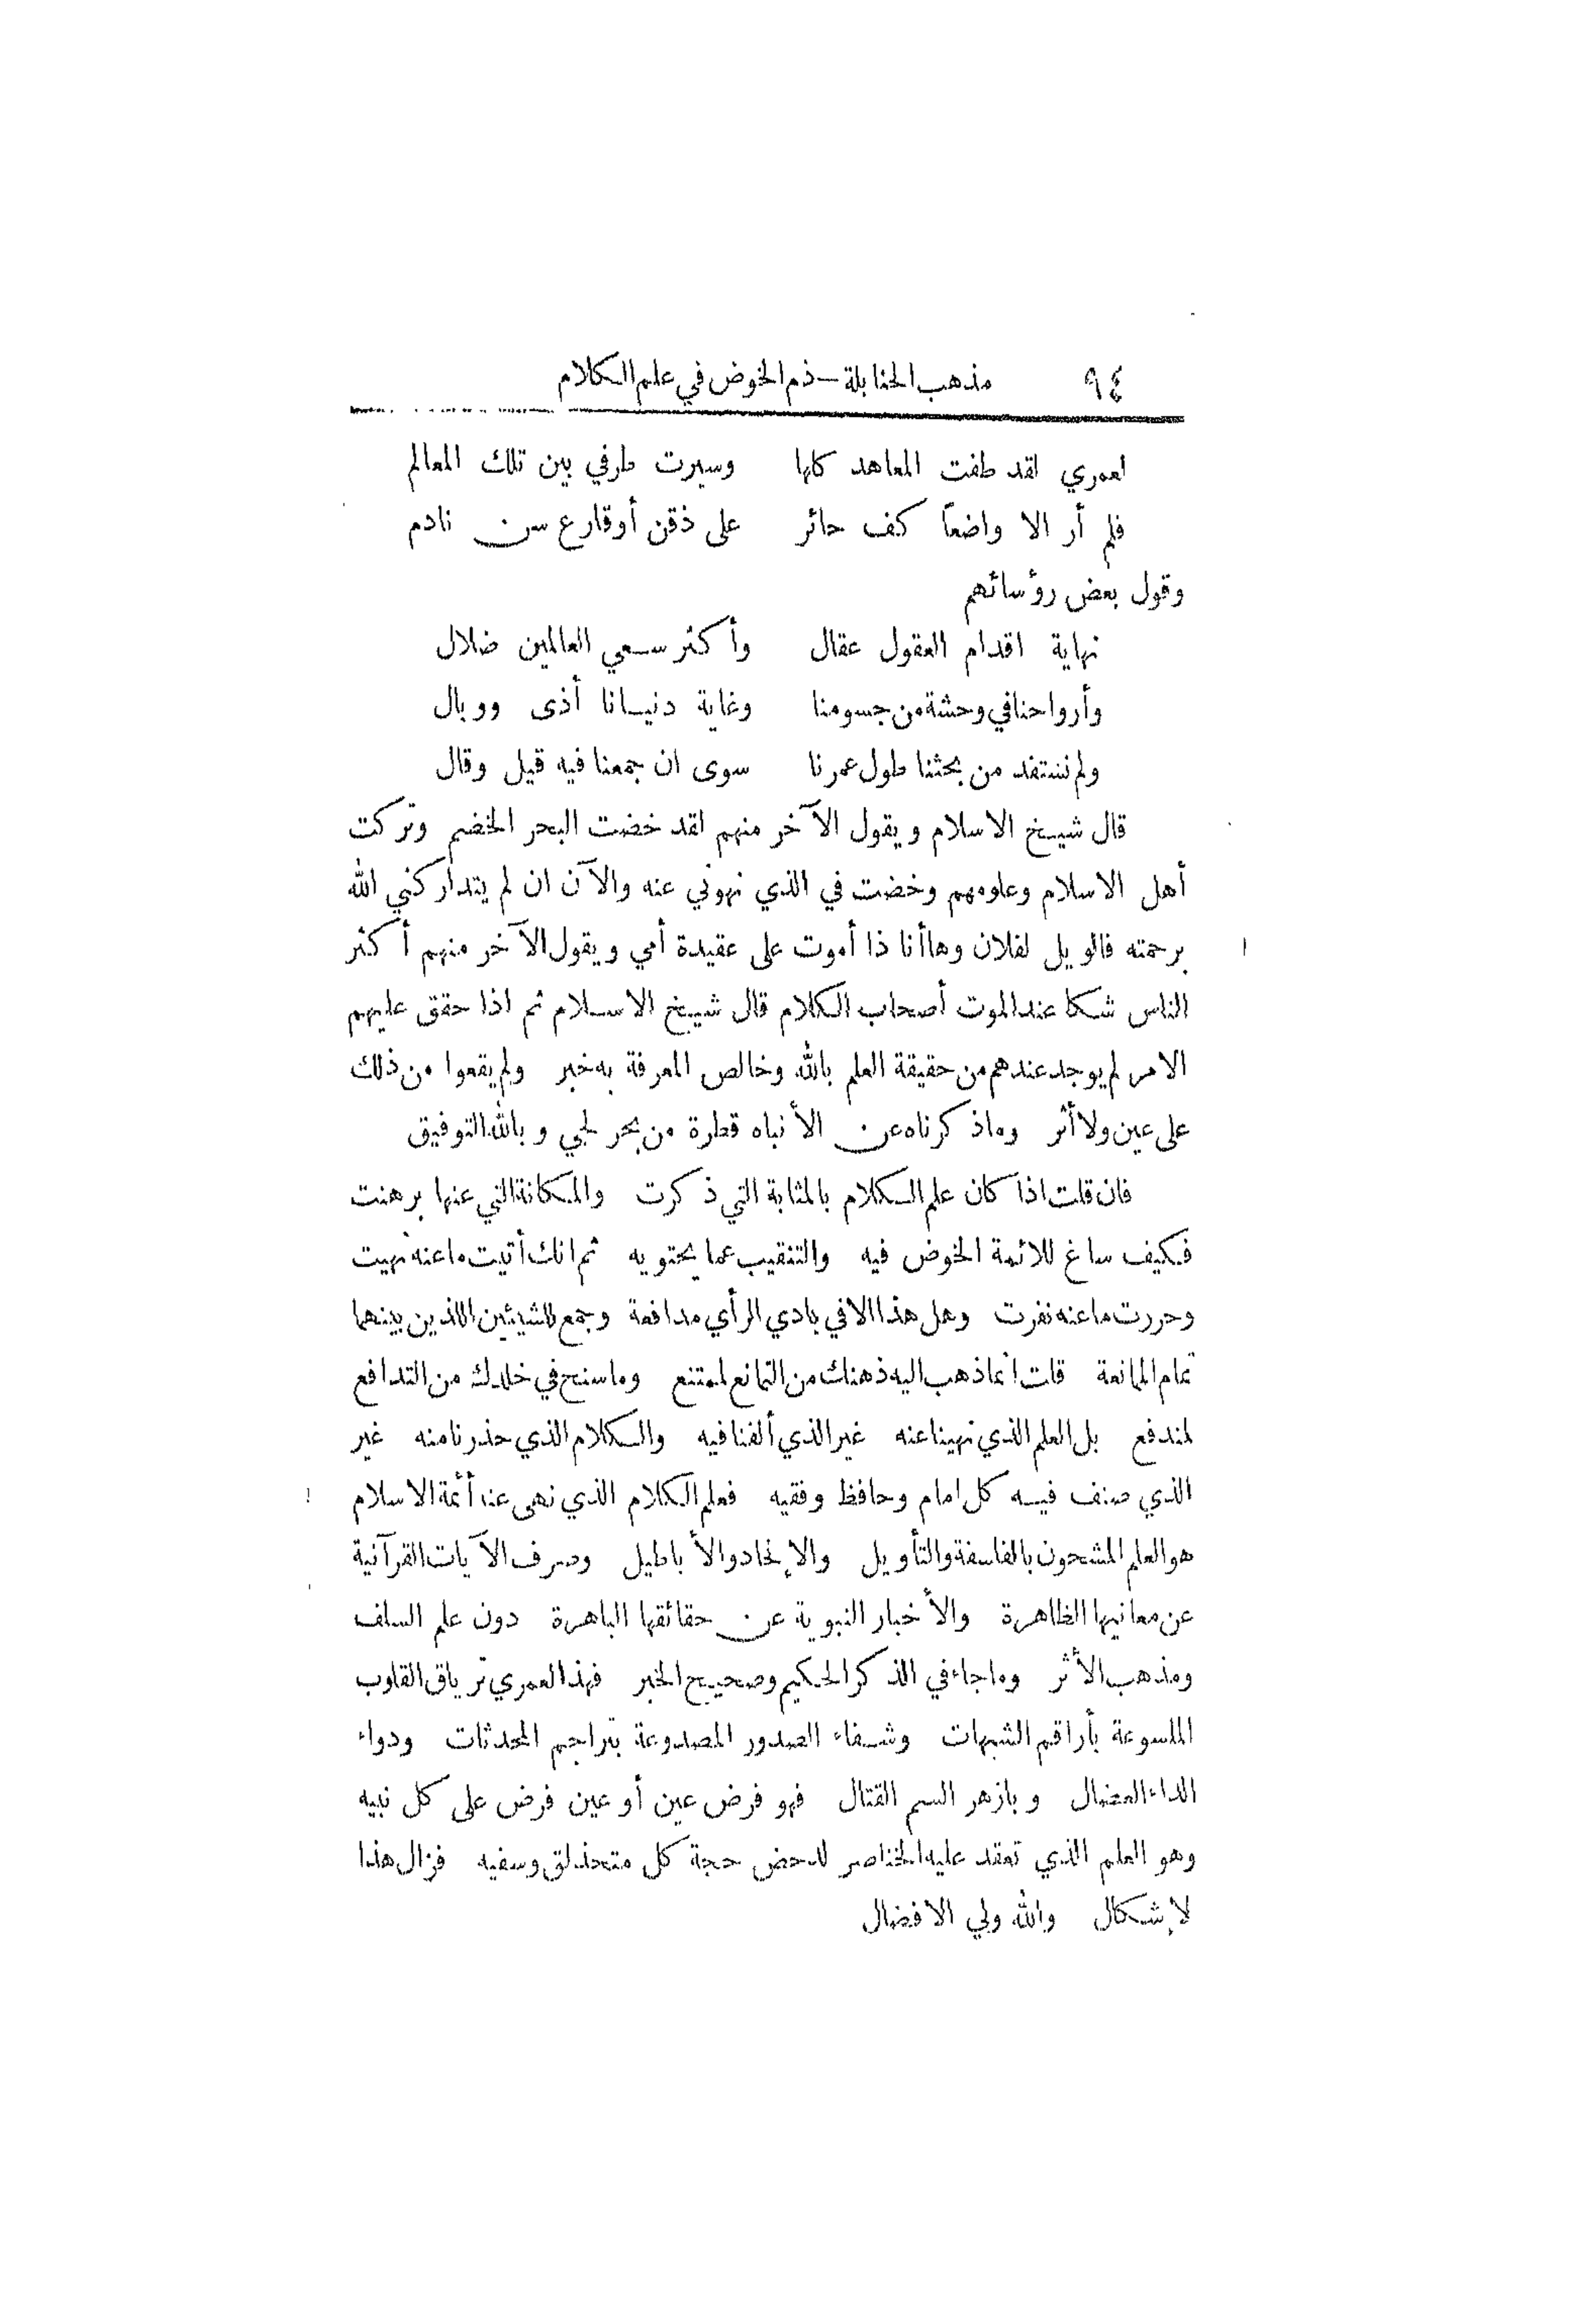 ٩٤ مذهب الحنابلة – ذم الخوض في علم الكلام
لعمري لقد طفت المعاهد كلها وسيرت طرفي بين تلك المعالم
فلم أر الا واضعاً كف حائر على ذقن أو قارع سن نادم
وقول بعض رؤسائهم
نهاية اقدام العقول عقال وأكثر سعي العالمين ضلال
وأرواحنا في وحشة من جسومنا وغاية دنيانا أذى ووبال
ولم نستفد من بحثنا طول عمرنا سوى ان جمعنا فيه قيل وقال
قال شيخ الاسلام ويقول الآخر منهم لقد خضت البحر الخضم وتركت
أهل الاسلام وعلومهم وخضت في الذي نهوني عنه والآن ان لم يتداركني الله
برحمته فالويل لفلان وها أنا ذا أموت على عقيدة أمي ويقول الآخر منهم أكثر
الناس شكا عند الموت أصحاب الكلام قال شيخ الاسلام ثم اذا حقق عليهم
الامر لم يوجد عندهم من حقيقة العلم بالله وخالص المعرفة به خبر ولم يقعوا من ذلك
على عين ولا أثر وما ذكرناه عن الأنباه قطرة من بحر لجي وبالله التوفيق
فان قلت اذا كان علم الكلام بالمثابة التي ذكرت والمكانة التي عنها برهنت
فكيف ساغ للائمة الخوض فيه والتنقيب عما يحتويه ثم انك أتيت ما عنه نهيت
وحررت ما عنه نفرت وهل هذا الا في بادي الرأي مدافعة وجمع للشيئين اللذين بينهما
تمام الممانعة قلت انما ذهب اليه ذهنك من التمانع لممتنع وما سنح في خلدك من التدافع
لمندفع بل العلم الذي نهينا عنه غير الذي ألفنا فيه والكلام الذي حذرنا منه غير
الذي صنف فيه كل امام وحافظ وفقيه فعلم الكلام الذي نهى عنه أئمة الاسلام
هو العلم المشحون بالفلسفة والتأويل والإلحاد والأباطيل وصرف الآيات القرآنية
عن معانيها الظاهرة والأخبار النبوية عن حقائقها الباهرة دون علم السلف
ومذهب الأثر وما جاء في الذكر الحكيم وصحيح الخبر فهذا لعمري ترياق القلوب
الملسوعة بأراقم الشبهات وشفاء الصدور المصدوعة بتراجم المحدثات ودواء
الداء العضال وبازهر السم القتال فهو فرض عين أو عين فرض على كل نبيه
وهو العلم الذي تعقد عليه الخناصر لدحض حجة كل متحذلق وسفيه فزال هذا
لإشكال والله ولي الافضال